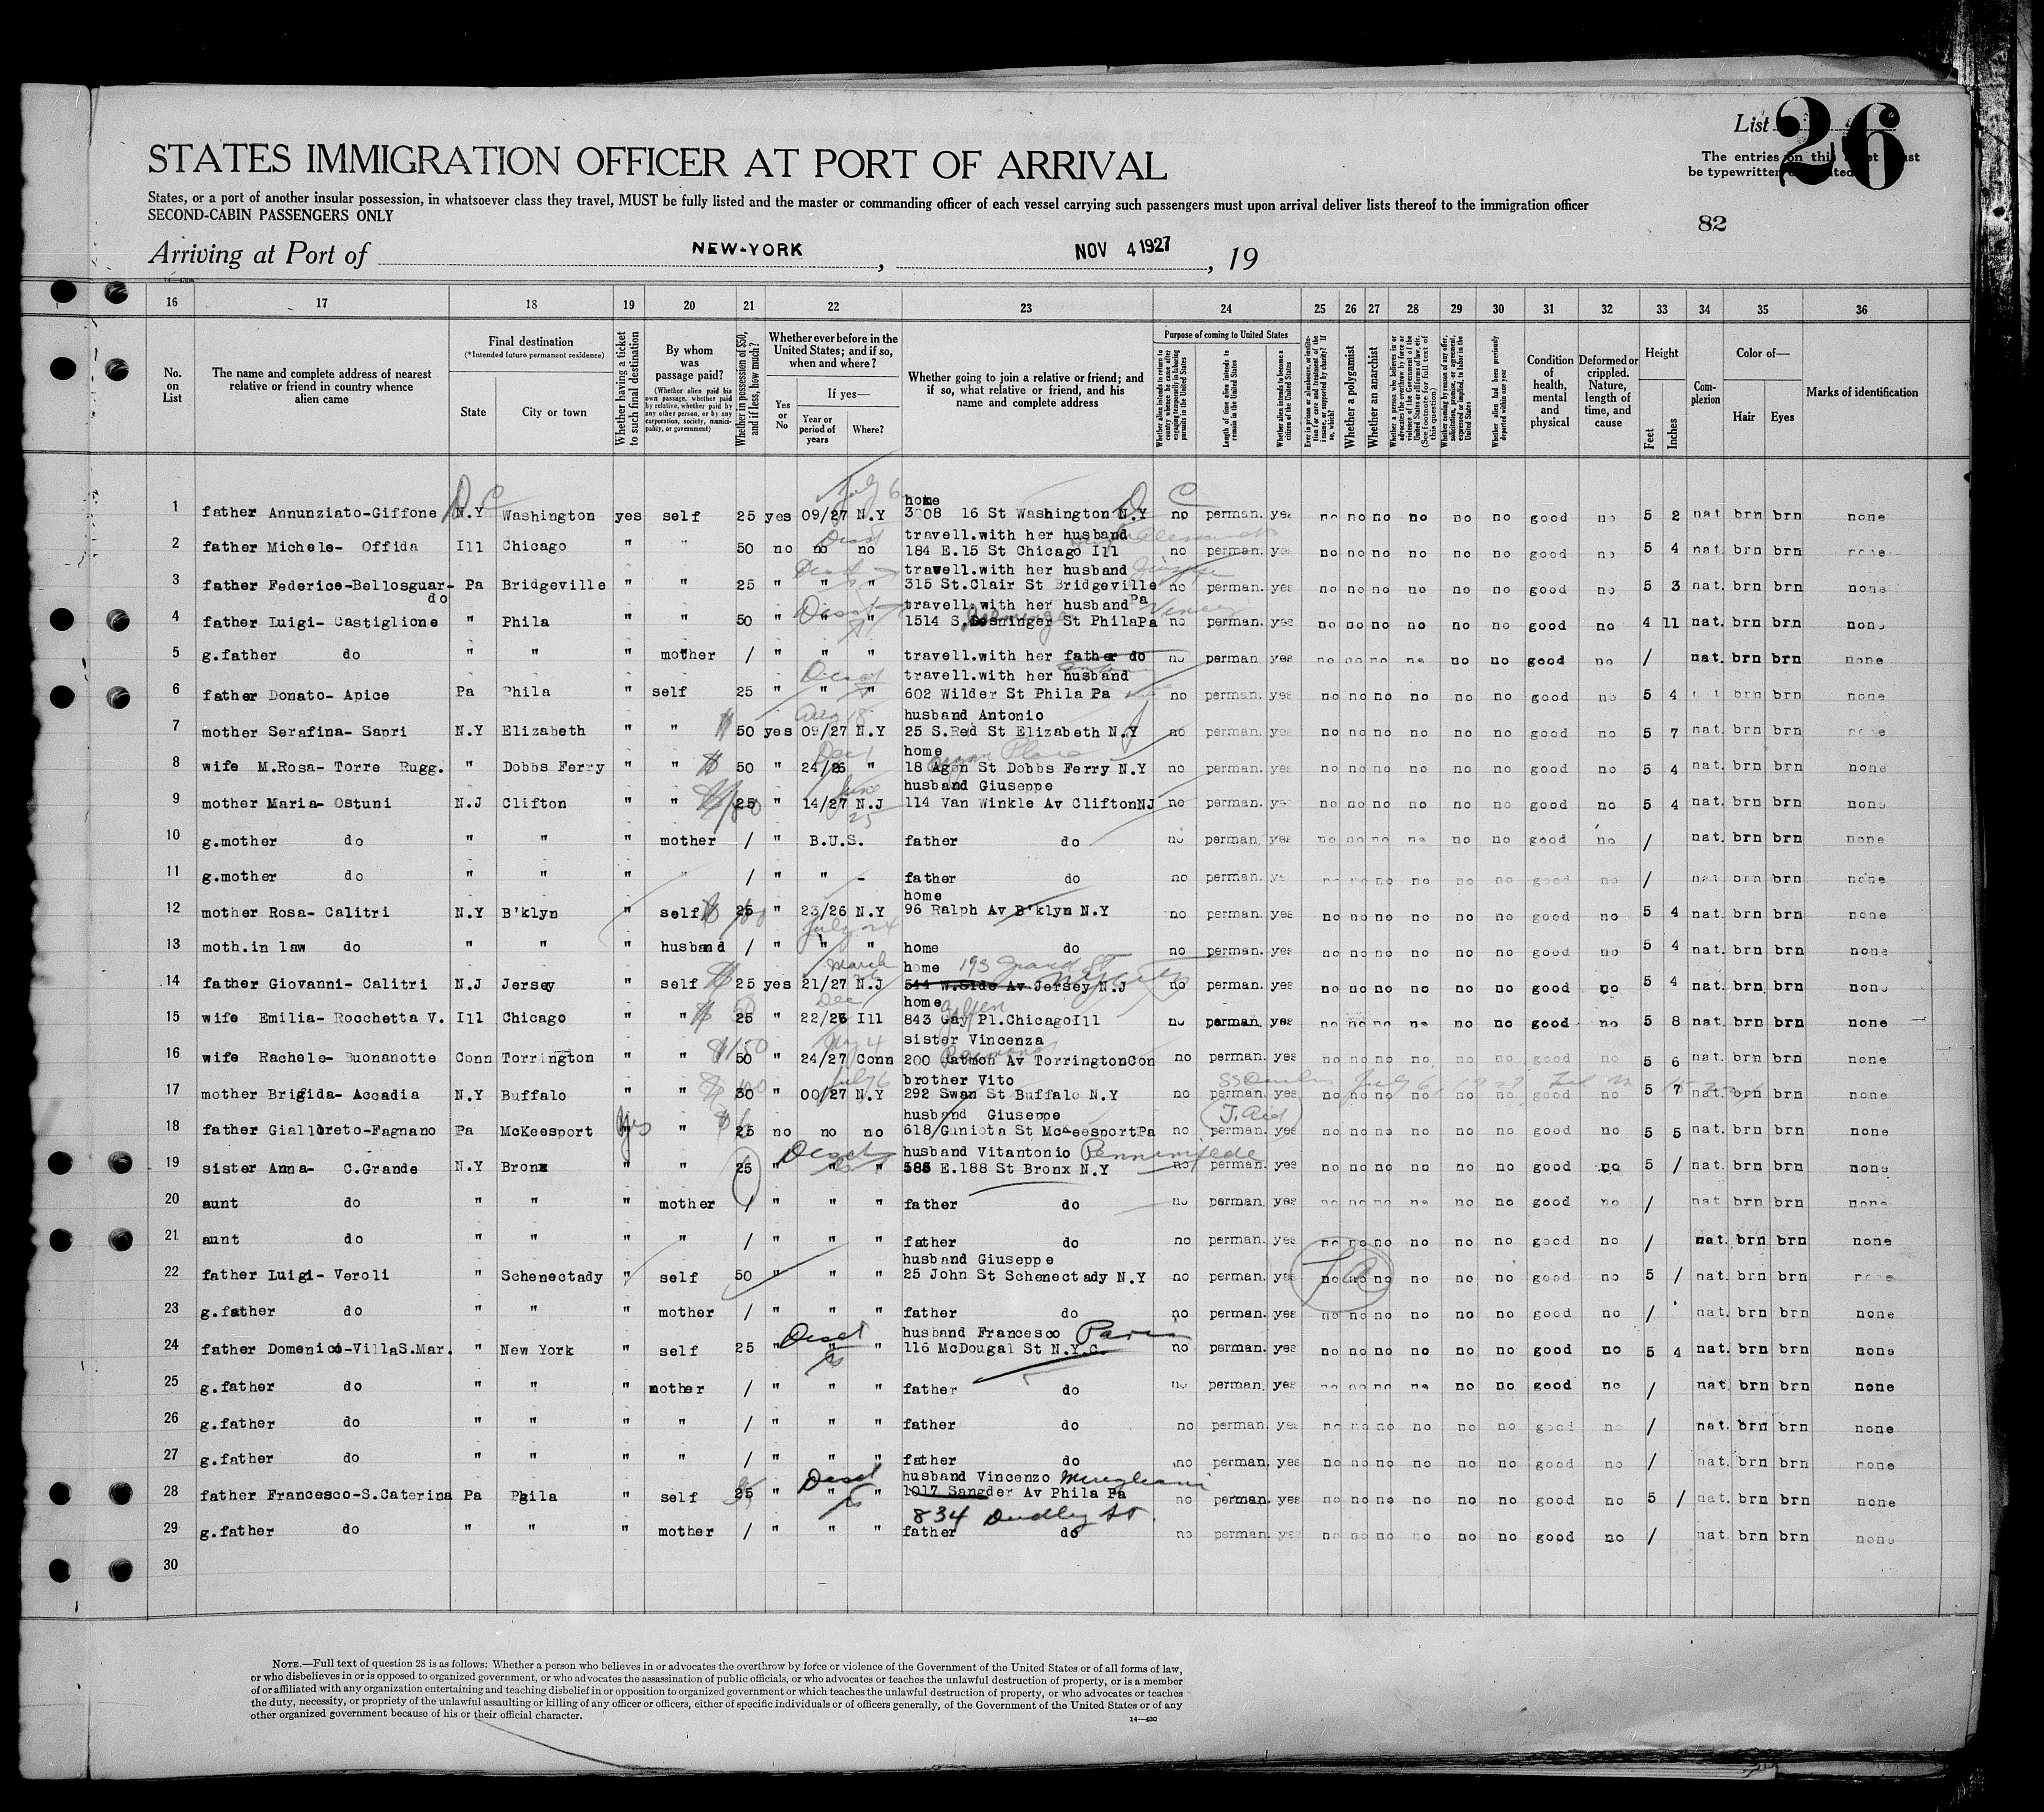 List 26
The entries on this
be typewritten
82
STATES IMMIGRATION OFFICER AT PORT OF ARRIVAL
States, or a port of another insular possession, in whatsoever class they travel, MUST be fully listed and the master or commanding officer of each vessel carrying such passengers must upon arrival deliver lists thereof to the immigration officer
SECOND-CABIN PASSENGERS ONLY
Arriving at Port of NEW-YORK, NOV 4 1927, 19
16 17 18 19 20 21 22 23 24 25 26 27 28 29 30 31 32 33 34 35 36
No. on List
The name and complete address of nearest relative or friend in country whence alien came
Final destination
(*Intended future permanent residence)
State
City or town
Whether having a ticket to such final destination
By whom was passage paid?
(Whether alien paid his own passage, whether paid by relative, whether paid by any other person, or by any corporation, society, municipality, or government)
Whether in possession of $50, and if less, how much?
Whether ever before in the United States; and if so, when and where?
Yes or No
If yes—
Year or period of years
Where?
Whether going to join a relative or friend; and if so, what relative or friend, and his name and complete address
Purpose of coming to United States
Length of time alien intends to remain in the United States
Whether alien intends to become a citizen of the United States
Whether a polygamist
Whether an anarchist
Whether alien had been previously deported within one year
Condition of health, mental and physical
Deformed or crippled. Nature, length of time, and cause
Height
Feet
Inches
Complexion
Color of—
Hair
Eyes
Marks of identification
1 father Annunziato-Giffone N.Y D C Washington yes self 25 yes 09/27 July 6 N.Y home 3008 16 St Washington N.Y D C no perman. yes no no no no no no good no 5 2 nat. brn brn none
2 father Michele- Offida Ill Chicago " " 50 no no no travell.with her husband 184 E.15 St Chicago Ill no perman. yes no no no no no no good no 5 4 nat. brn brn none
3 father Federico-Bellosguardo Pa Bridgeville " " 25 " " " travell.with her husband 315 St.Clair St Bridgeville Pa no perman. yes no no no no no no good no 5 3 nat. brn brn none
4 father Luigi- Castiglione " Phila " " 50 " " " travell.with her husband 1514 S. St PhilaPa no perman. yes no no no no no no good no 4 11 nat. brn brn none
5 g.father do " " " mother / " " " travell.with her father do no perman yes no no no no no no good no / nat. brn brn none
6 father Donato- Apice Pa Phila " self 25 " " " travell.with her husband 602 Wilder St Phila Pa no perman. yes no no no no no no good no 5 4 nat brn brn none
7 mother Serafina- Sapri N.Y Elizabeth " " 50 yes 09/27 Aug 18 N.Y husband Antonio 25 S.Red St Elizabeth N.Y no perman. yes no no no no no no good no 5 7 nat. brn brn none
8 wife M.Rosa- Torre Rugg. " Dobbs Ferry " " 50 " 24/26 Dec 1 " home 18 Agon St Dobbs Ferry N.Y no perman. yes no no no no no no good no 5 4 nat. brn brn none
9 mother Maria- Ostuni N.J Clifton " " 25 " 14/27 June 25 N.J husband Giuseppe 114 Van Winkle Av CliftonNJ no perman. yes no no no no no no good no 5 4 nat. brn brn none
10 g.mother do " " " mother / " B.U.S. father do no perman yes no no no no no no good no / nat. brn brn none
11 g.mother do " " " " / " " - father do no perman. ye no no no no no no good no / nat brn brn none
12 mother Rosa- Calitri N.Y B'klyn " self 25 " 23/26 N.Y home 96 Ralph Av B'klyn N.Y no perman. yes no no no no no no good no 5 4 nat. brn brn none
13 moth.in law do " " " husband / " July 24 " " home do no perman. yes no no no no no no good no 5 4 nat. brn brn none
14 father Giovanni- Calitri N.J Jersey " self 25 yes 21/27 March N.J home 193 Grand St 544 W.Side Av Jersey N.J no perman. yes no no no no no no good no 5 4 nat. brn brn none
15 wife Emilia- Rocchetta V. Ill Chicago " " 25 " 22/26 Dec Ill home 843 Gay Pl.ChicagoIll no perman. yes no no no no no no good no 5 8 nat. brn brn none
16 wife Rachele- Buonanotte Conn Torrington " " 50 $150 " 24/27 Conn sister Vincenza 200 Av TorringtonCon no perman. yes no no no no no no good no 5 6 nat. brn brn none
17 mother Brigida- Accadia N.Y Buffalo " " 30 " 00/27 July 6 N.Y brother Vito 292 Swan St Buffalo N.Y no perman. yes no no no no no no good no 5 7 nat. brn brn none
18 father Gialloreto-Fagnano Pa McKeesport yes " 25 no no no husband Giuseppe 618 Giniota St McKeesportPa no perman. yes no no no no no no good no 5 5 nat. brn brn none
19 sister Anna- C.Grande N.Y Bronx " " 25 " " " husband Vitantonio 585 E.188 St Bronx N.Y no perman. yes no no no no no no good no 5 / nat. brn brn none
20 aunt do " " " mother / " " " father do no perman. yes no no no no no no good no / nat brn brn none
21 aunt do " " " " / " " " father do no perman. yes no no no no no no good no / nat. brn brn none
22 father Luigi- Veroli " Schenectady " self 50 " " " husband Giuseppe 25 John St Schenectady N.Y no perman. yes no no no no no no good no 5 / nat. brn brn none
23 g.father do " " " mother / " " " father do no perman. yes no no no no no no good no / nat. brn brn none
24 father Domenico-VillaS.Mar. " New York " self 25 " " " husband Francesco 116 McDougal St N.Y.C. no perman. yes no no no no no no good no 5 4 nat. brn brn none
25 g.father do " " " mother / " " " father do no perman. yes no no no no no no good no / nat. brn brn none
26 g.father do " " " " / " " " father do no perman. yes no no no no no no good no / nat. brn brn none
27 g.father do " " " " / " " " father do no perman. yes no no no no no no good no / nat. brn brn none
28 father Francesco-S.Caterina Pa Phila " self 25 " " " husband Vincenzo 1017 Sangder Av Phila Pa 834 Dudley St. no perman. yes no no no no no no good no 5 / nat. brn brn none
29 g.father do " " " mother / " " " father do no perman. yes no no no no no no good no / nat. brn brn none
30
NOTE.—Full text of question 28 is as follows: Whether a person who believes in or advocates the overthrow by force or violence of the Government of the United States or of all forms of law,
or who disbelieves in or is opposed to organized government, or who advocates the assassination of public officials, or who advocates or teaches the unlawful destruction of property, or is a member
of or affiliated with any organization entertaining and teaching disbelief in or opposition to organized government or which teaches the unlawful destruction of property, or who advocates or teaches
the duty, necessity, or propriety of the unlawful assaulting or killing of any officer or officers, either of specific individuals or of officers generally, of the Government of the United States or of any
other organized government because of his or their official character.
14—430